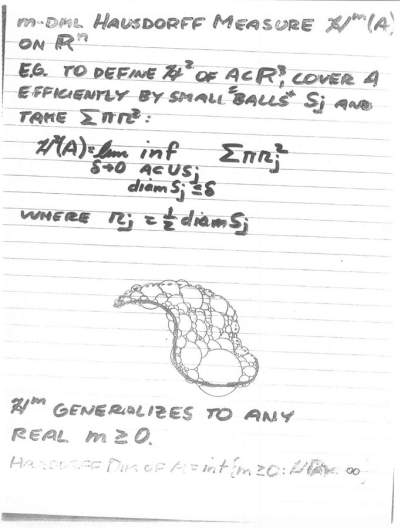 m-DML HAUSDORFF MEASURE ℋᵐ(A)
ON ℝⁿ
E.G. TO DEFINE ℋ² OF A⊂ℝ³, COVER A
EFFICIENTLY BY SMALL "BALLS" Sj AND
TAKE Σπr²:
ℋ²(A)=lim inf Σπrj²
δ→0 A⊂∪Sj
diam Sj ≤ δ
WHERE rj = ½ diam Sj
ℋᵐ GENERALIZES TO ANY
REAL m ≥ 0.
HAUSDORFF DIM OF A = inf{m ≥ 0: ∞